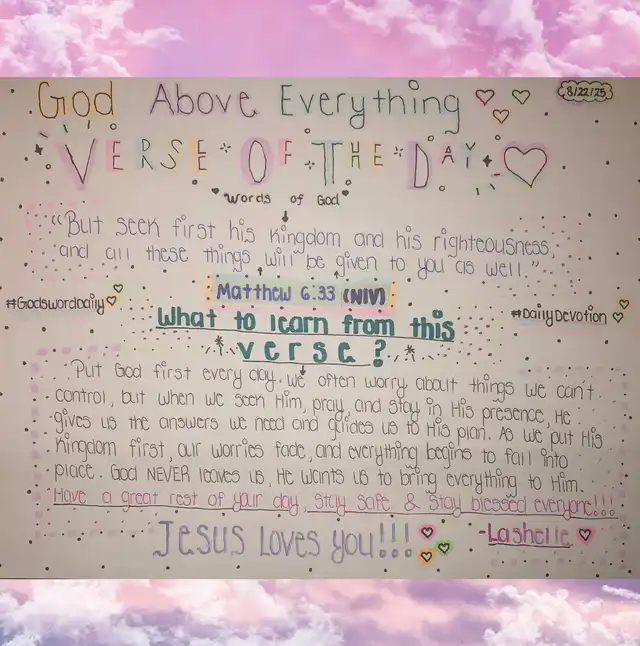 God Above Everything
8/22/25
VERSE OF THE DAY
"Words of God"
"But seek first his kingdom and his righteousness,
and all these things will be given to you as well."
Matthew 6:33 (NIV)
#GodsWordDaily
#DailyDevotion
What to learn from this
verse?
Put God first every day. We often worry about things we can't
control, but when we seek Him, pray, and stay in His presence, He
gives us the answers we need and guides us to His plan. As we put His
Kingdom first, our worries fade, and everything begins to fall into
place. God NEVER leaves us, He wants us to bring everything to Him.
Have a great rest of your day, Stay safe & Stay blessed everyone!!!
JESUS LOVES YOU!!!
-Lashelle